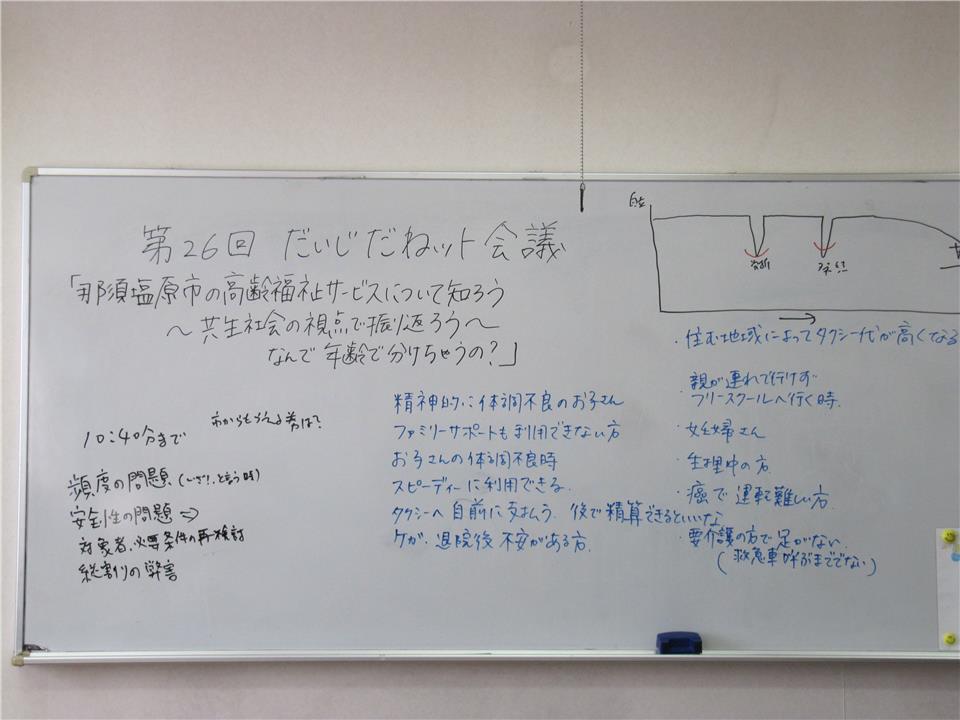 第26回 だいじだねット会議
「那須塩原市の高齢福祉サービスについて知ろう
～共生社会の視点で振り返ろう～
なんで年齢で分けちゃうの?」
10:40分まで
頻度の問題(いざ!と言う時)
安全性の問題⇒
対象者、必要条件の再検討
総割りの弊害
精神的に体調不良のお子さん
ファミリーサポートも利用できない方
お子さんの体調不良時
スピーディーに利用できる
タクシーへ自前に支払う 後で精算できるといいな
ケガ、退院後 不安がある方
自立
骨折
→
・住む地域によってタクシー代が高くなる
・親が連れて行けず
フリースクールへ行く時、
・妊婦さん
・生理中の方
・癌で運転難しい方
・要介護の方で足がない
(救急車呼ぶまででない)